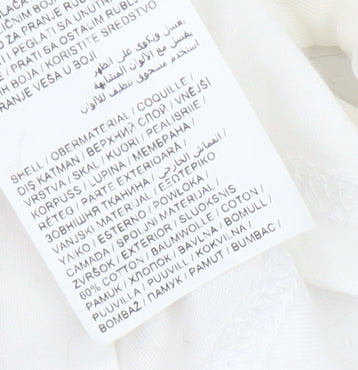 ČNIM BOJAMA
ZA PRANJE RUBLJA
I PEGLATI SA UNUTRA
PRATI SA OSTALIM RUBLJ
H BOJA / KORISTITE SREDSTVO
RANJE VEŠA U BOJI
يغسل ويكوى على الظهر
يغسل مع الألوان المشابهة
استخدم مسحوق تنظيف للألوان
SHELL / OBERMATERIAL / COQUILLE /
DIŞ KATMAN / ВЕРХНИЙ СЛОЙ / VNĚJŠÍ
VRSTVA / SKAL / KUORI / PEALISRIIE /
KORPUSS / LUPINA / МЕМБРАНА /
RÉTEG / PARTE EXTERIOARĂ /
ЗОВНІШНЯ ТКАНИНА / القماش الخارجي
VANJSKI MATERIJAL / ΕΞΩΤΕΡΙΚΟ
ΥΛΙΚΟ / ESTERNO / POWŁOKA /
CAMADA / SPOLJNI MATERIJAL /
ZVRŠOK / EXTERIOR / SLUOKSNIS
60% COTTON / BAUMWOLLE / COTON /
PAMUK / ХЛОПОК / BAVLNA / BOMULL /
PUUVILLA / PUUVILL / KOKVILNA /
BOMBAŽ / ПАМУК / PAMUT / BUMBAC /